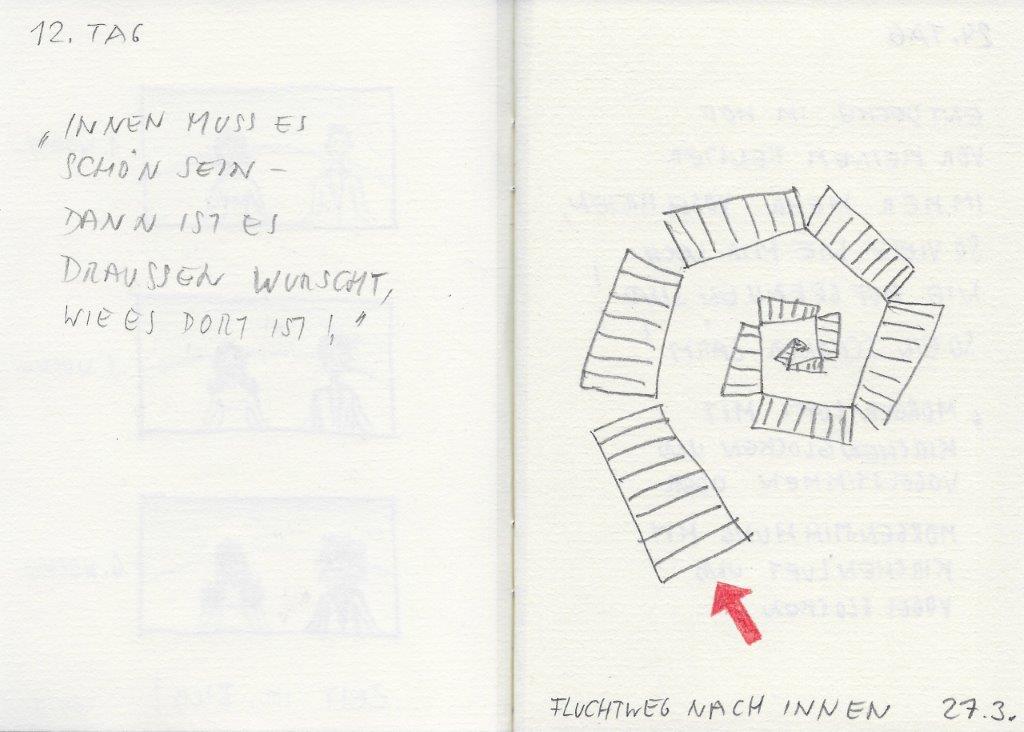 12. TAG
„INNEN MUSS ES
SCHÖN SEIN –
DANN IST ES
DRAUSSEN WURSCHT,
WIE ES DORT IST!"
FLUCHTWEG NACH INNEN 27.3.